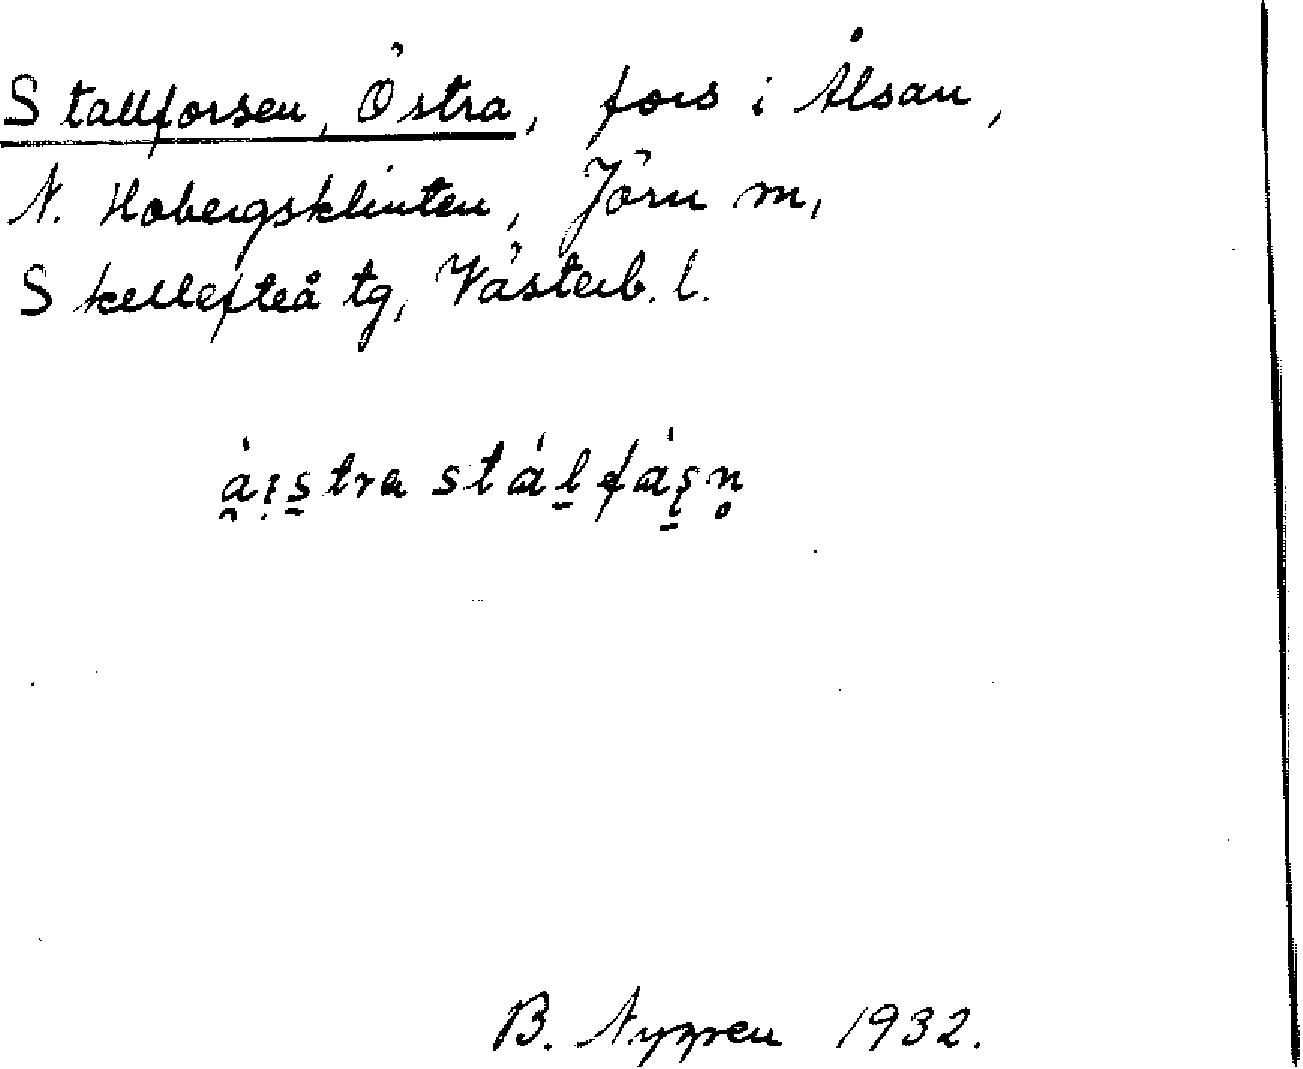 Stallforsen, Östra, fors i Ålsan,
N. Hobergsklinten, Jörn m,
Skellefteå tg, Västerb. l.
B. Nygren 1932.